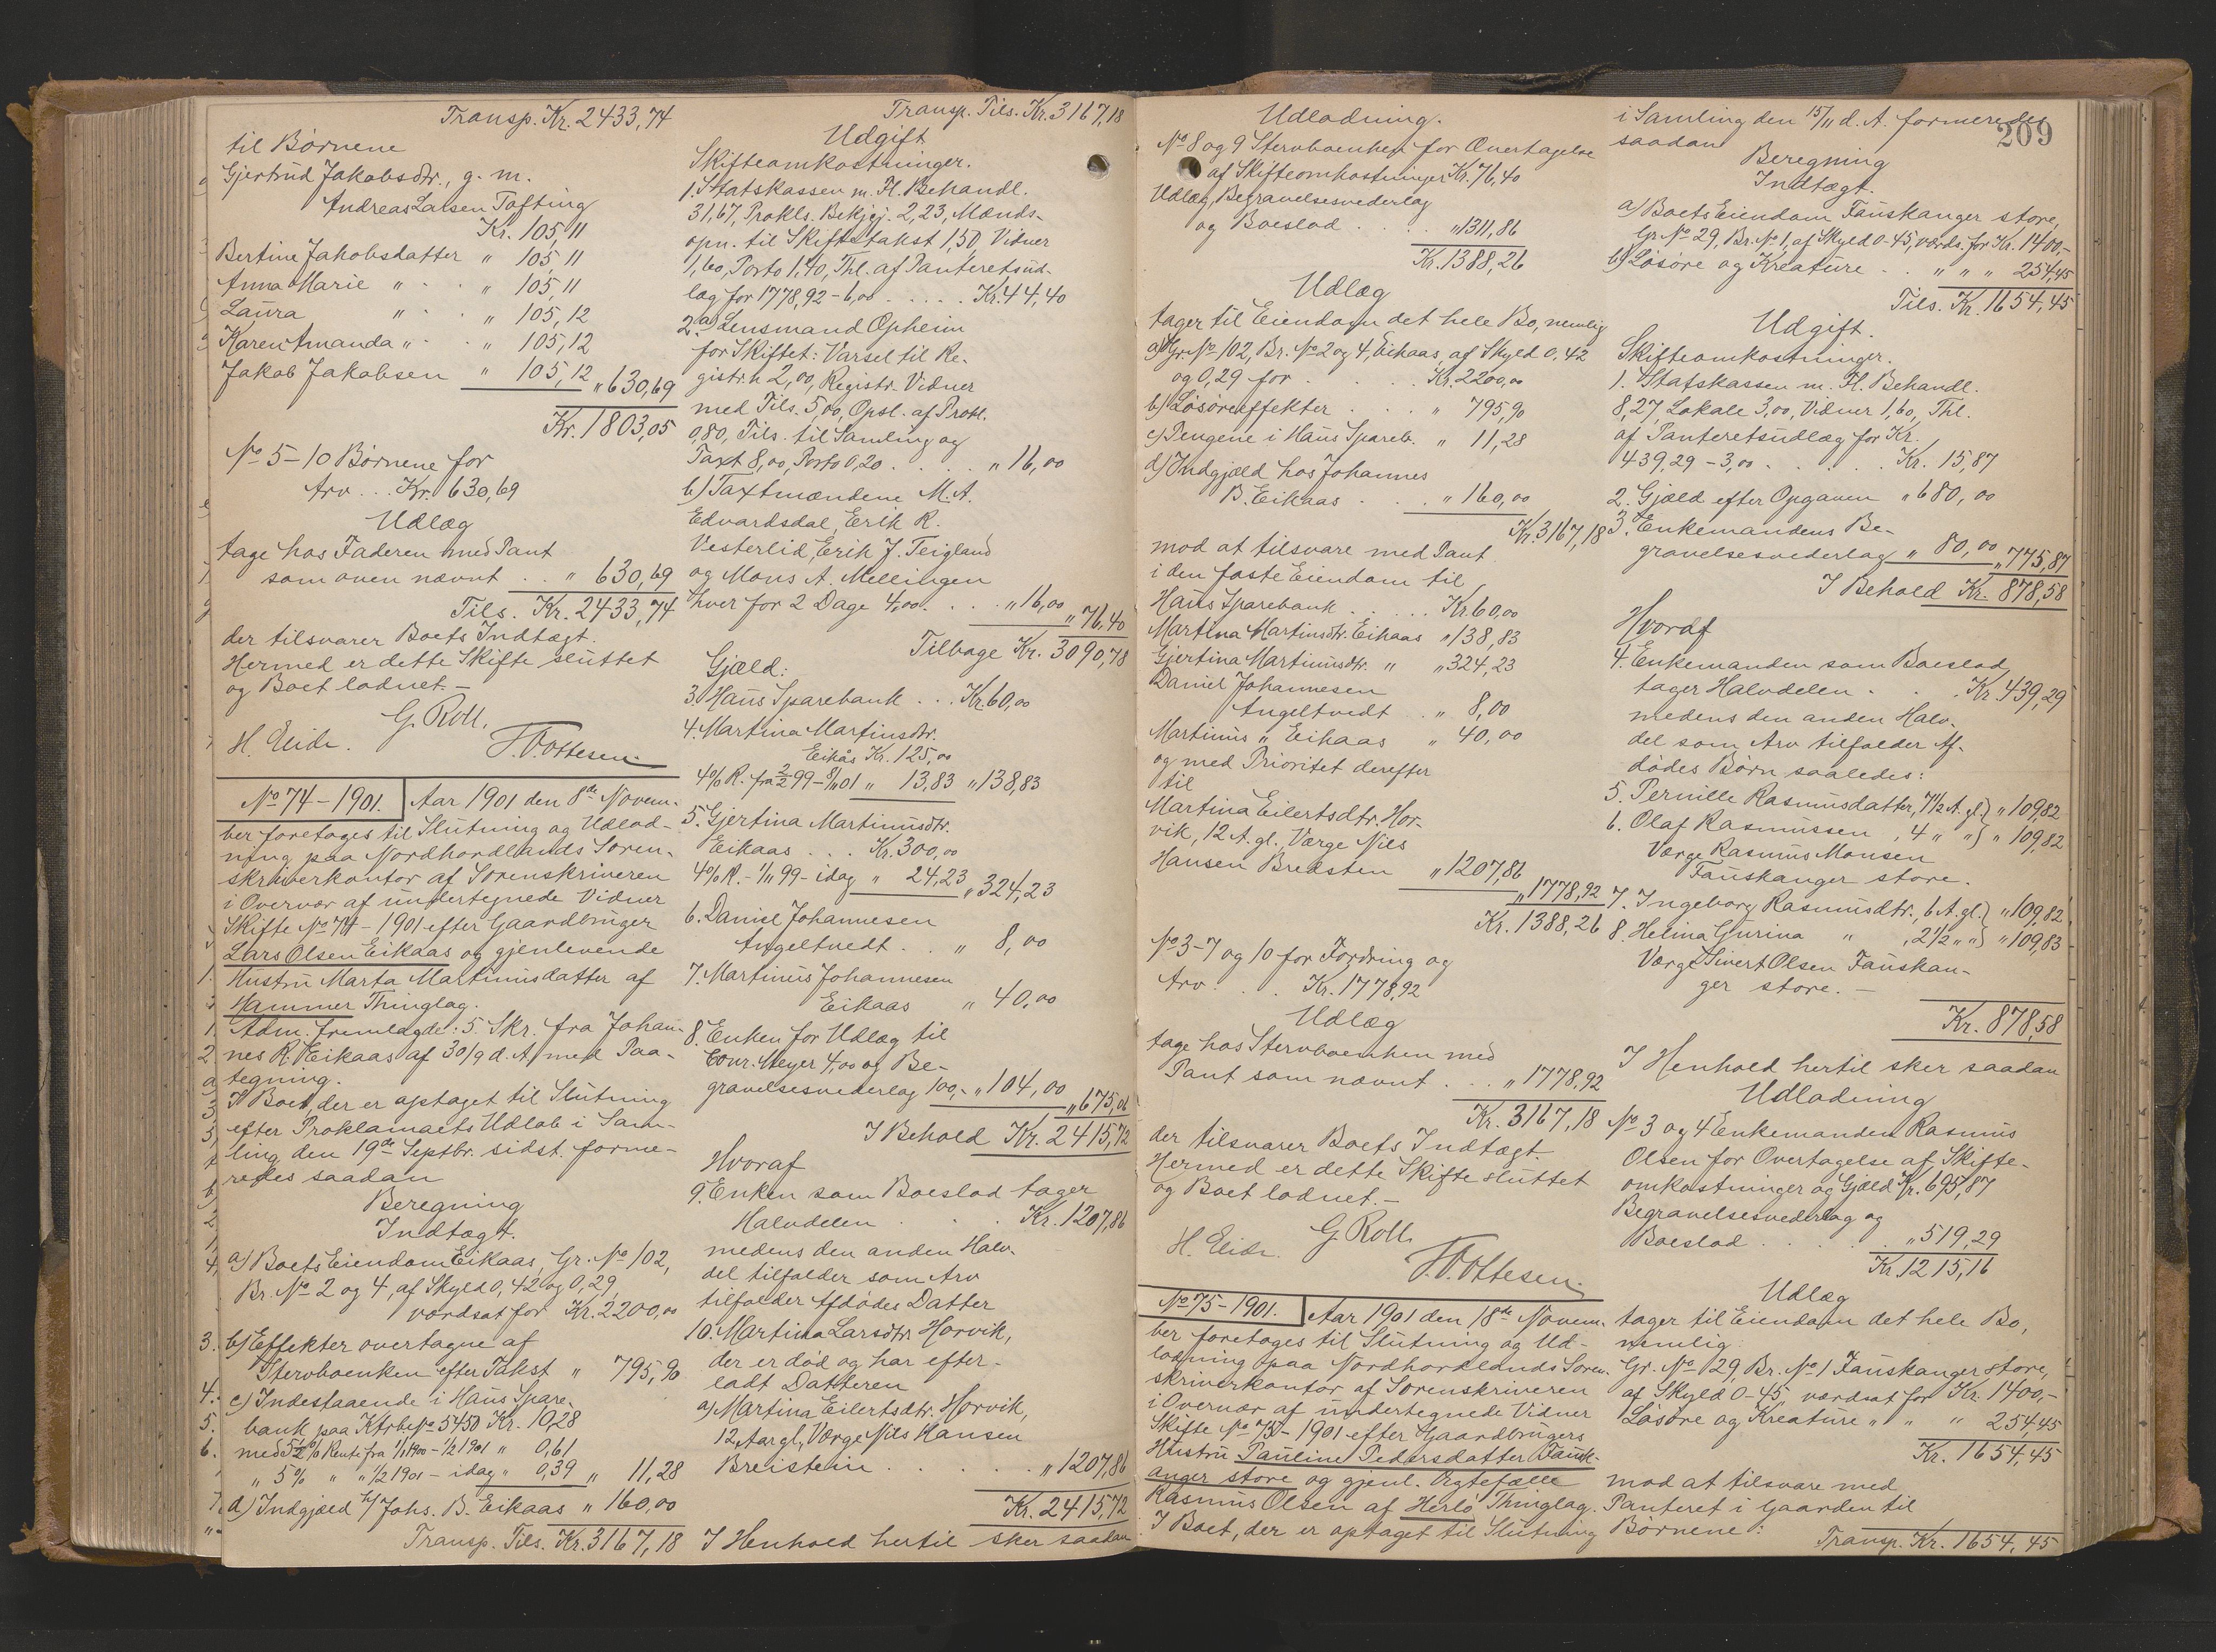 Transp. Kr. 2433,74
til Børnene
Gjertrud Jakobsdtr., g. m.
Andreas Larsen Tofting
Kr. 105,11
Bertine Jakobsdatter " 105,11
Anna Marie " . . " 105,11
Laura " . " 105,12
Karen Amanda " . . " 105,12
Jakob Jakobsen " 105,12 " 630,69
Kr. 1803,05
No 5-10 Børnene for
Arv . . . Kr. 630,69
Udlæg
tage hos Faderen med Pant
som oven nævnt . . " 630,69
Tils. Kr. 2433,74
der tilsvarer Boets Indtægt.
Hermed er dette Skifte sluttet
og Boet lodnet. -
G. Roll.
H. Eide. Ottesen.
No 74 - 1901. Aar 1901 den 8de Novem-
ber foretoges til Slutning og Udlod-
ning paa Nordhordlands Soren-
skriverkontor af Sorenskriveren
i Overvær af undertegnede Vidner
Skifte No 74 - 1901 efter Gaardbruger
Lars Olsen Eikaas og gjenlevende
Hustru Marta Martinusdatter af
Hammer Thinglag.
Adm. fremlagde: 5. Skr. fra Johan-
nes R. Eikaas af 30/9 d. A. med Paa-
tegning.
I Boet, der er optaget til Slutning
efter Proklamaets Udløb i Sam-
ling den 19de Septbr. sidst. forme-
redes saadan
Beregning
Indtægt.
a) Boets Eiendom Eikaas, Gr. No 102,
Br. No 2 og 4, af Skyld 0,42 og 0,29,
værdsat for Kr. 2200,00
b) Effekter overtagne af
Stervboenken efter Takst " 795,90
c) Indestaaende i Haus Spare-
bank paa Ktrbc No 5450 Kr. 10,28
med 5½ % Rente fra 1/1 1900 - 1/2 1901 " 0,61
" 5 % " " 1/2 1901 - idag " 0,39 " 11,28
d) Indgjæld h/ Johs. B. Eikaas " 160,00
Transp. Tils. Kr. 3167,18
Transp. Tils. Kr. 3167,18
Udgift
Skifteomkostninger.
1. Statskassen m. H. Behandl.
31,67, Prokls. Bekjgj. 2,23, Mænds-
opn. til Skiftetakst 1,50, Vidner
1,60, Porto 1,40, Thl. af Panteretsud-
læg for 1778,92 - 6,00 . . . . . Kr. 44,40
2. a) Lensmand Opheim
for Skiftet: Varsel til Re-
gistr.h 2,00, Registr. Vidner
med Tils. 5,00, Opsl. af Prokl.
0,80, Tils. til Samling og
Taxt 8,00, Porto 0,20 . . . . " 16,00
b) Taxtmændene M. A.
Edvardsdal, Erik R.
Vesterlid, Erik J. Teigland
og Mons A. Mellingen
hver for 2 Dage 4,00. . . . " 16,00 " 76,40
Tilbage Kr. 3090,78
Gjæld.
3. Haus Sparebank . . . Kr. 60,00
4. Martina Martinsdtr.
Eikås Kr. 125,00
4 % R. fra 2/2 99 - 8/11 01 " 13,83 " 138,83
5. Gjertina Martinusdtr.
Eikaas . . . Kr. 300,00
4 % R. - 1/11 99 - idag " 24,23 " 324,23
6. Daniel Johannesen
Angeltvedt . . " 8,00
7. Martinus Johannesen
Eikaas " 40,00
8. Enken for Udlæg til
Conr. Meyer 4,00 og Be-
gravelsesvederlag 100,- " 104,00 " 675,06
I Behold Kr. 2415,72
Hvoraf
9. Enken som Boeslod tager
Halvdelen . . . Kr. 1207,86
medens den anden Halv-
del tilfalder som Arv
tilfalder Afdødes Datter
10. Martina Larsdtr. Horvik,
der er død og har efter-
ladt Datteren
a) Martina Eilertsdtr. Horvik,
12 Aar gl., Værge Nils Hansen
Breistein . . . . . . " 1207,86
Kr. 2415,72
I Henhold hertil sker saadan
Udlodning.
No 8 og 9 Stervboenken for Overtagelse
af Skifteomkostninger Kr. 76,40
Udlæg, Begravelsesvederlag
og Boeslod . . . . " 1311,86
Kr. 1388,26
Udlæg
tager til Eiendom det hele Bo, nemlig
a) Gr. No 102, Br. No 2 og 4, Eikaas, af Skyld 0,42
og 0,29 for . . . . Kr. 2200,00
b) Løsøreeffekter . . . " 795,90
c) Pengene i Haus Spareb. " 11,28
d) Indgjæld hos Johannes
B. Eikaas . . . " 160,00
Kr. 3167,18
mod at tilsvare med Pant
i den faste Eiendom til
Haus Sparebank . . . . . Kr. 60,00
Martina Martinsdtr. Eikaas " 138,83
Gjertina Martinusdtr. " " 324,23
Daniel Johannesen
Angeltvedt . " 8,00
Martinus " Eikaas " 40,00
og med Prioritet derefter
til
Martina Eilertsdtr. Hor-
vik, 12 A. gl., Værge Nils
Hansen Bredsten " 1207,86
" 1778,92
Kr. 1388,26
No 3-7 og 10 for Fordring og
Arv . . . Kr. 1778,92
Udlæg
tage hos Stervboenken med
Pant som nævnt . . . " 1778,92
Kr. 3167,18
der tilsvarer Boets Indtægt.
Hermed er dette Skifte sluttet
og Boet lodnet. -
H. Eide. G. Roll.
Ottesen.
No 75 - 1901. Aar 1901 den 18de Novem-
ber foretoges til Slutning og Ud-
lodning paa Nordhordlands Soren-
skriverkontor af Sorenskriveren
i Overvær af undertegnede Vidner
Skifte No 75 - 1901 efter Gaardbrugers
Hustru Pauline Pedersdatter Fausk-
anger store og gjenl. Ægtefælle
Rasmus Olsen af Herlø Thinglag.
I Boet, der er optaget til Slutning
i Samling den 15/11 d. A. formeredes
209
saadan
Beregning
Indtægt.
a) Boets Eiendom Fauskanger store,
Gr. No 29, Br. No 1, af Skyld 0-45, værds. for Kr. 1400,-
b) Løsøre og Kreature . . " " " 254,45
Tils. Kr. 1654,45
Udgift.
Skifteomkostninger.
1. Statskassen m. H. Behandl.
8,27, Lokale 3,00, Vidner 1,60, Thl.
af Panteretsudlæg for Kr.
439,29 - 3,00 . . . . . Kr. 15,87
2. Gjæld efter Opgaven " 680,00
3. Enkemandens Be-
gravelsesvederlag " 80,00 " 775,87
I Behold Kr. 878,58
Hvoraf
4. Enkemanden som Boeslod
tager Halvdelen . . . Kr. 439,29
medens den anden Halv-
del som Arv tilfalder Af-
dødes Børn saaledes:
5. Pernille Rasmusdatter, 7½ A. gl. } " 109,82
6. Olaf Rasmussen , 4 " " } " 109,82
Værge Rasmus Monsen
Fauskanger store.
7. Ingeborg Rasmusdtr., 6 A. gl. } " 109,82
8. Helma Gurina " , 2½ " " } " 109,83
Værge Sivert Olsen Fauskan-
ger store. -
Kr. 878,58
I Henhold hertil sker saadan
Udlodning
No 3 og 4 Enkemanden Rasmus
Olsen for Overtagelse af Skifte-
omkostninger og Gjæld Kr. 695,87
Begravelsesvederlag og
Boeslod . . . . . . " 519,29
Kr. 1215,16
Udlæg
tager til Eiendom det hele Bo,
nemlig
Gr. No 29, Br. No 1 Fauskanger store,
af Skyld 0-45, værdsat for Kr. 1400,-
Løsøre og Kreature " " " 254,45
Kr. 1654,45
mod at tilsvare med
Panteret i Gaarden til
Børnene:
Transp. Kr. 1654,45